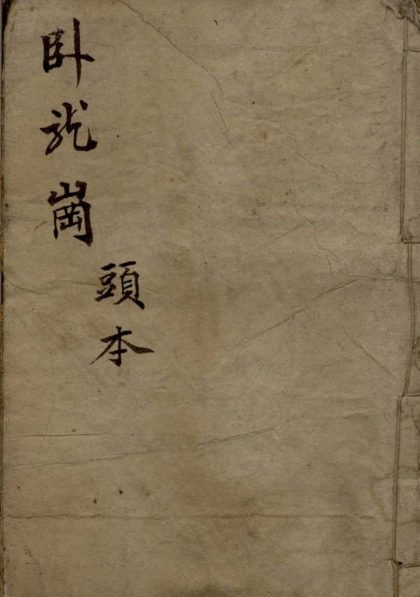 卧龍崗
頭本